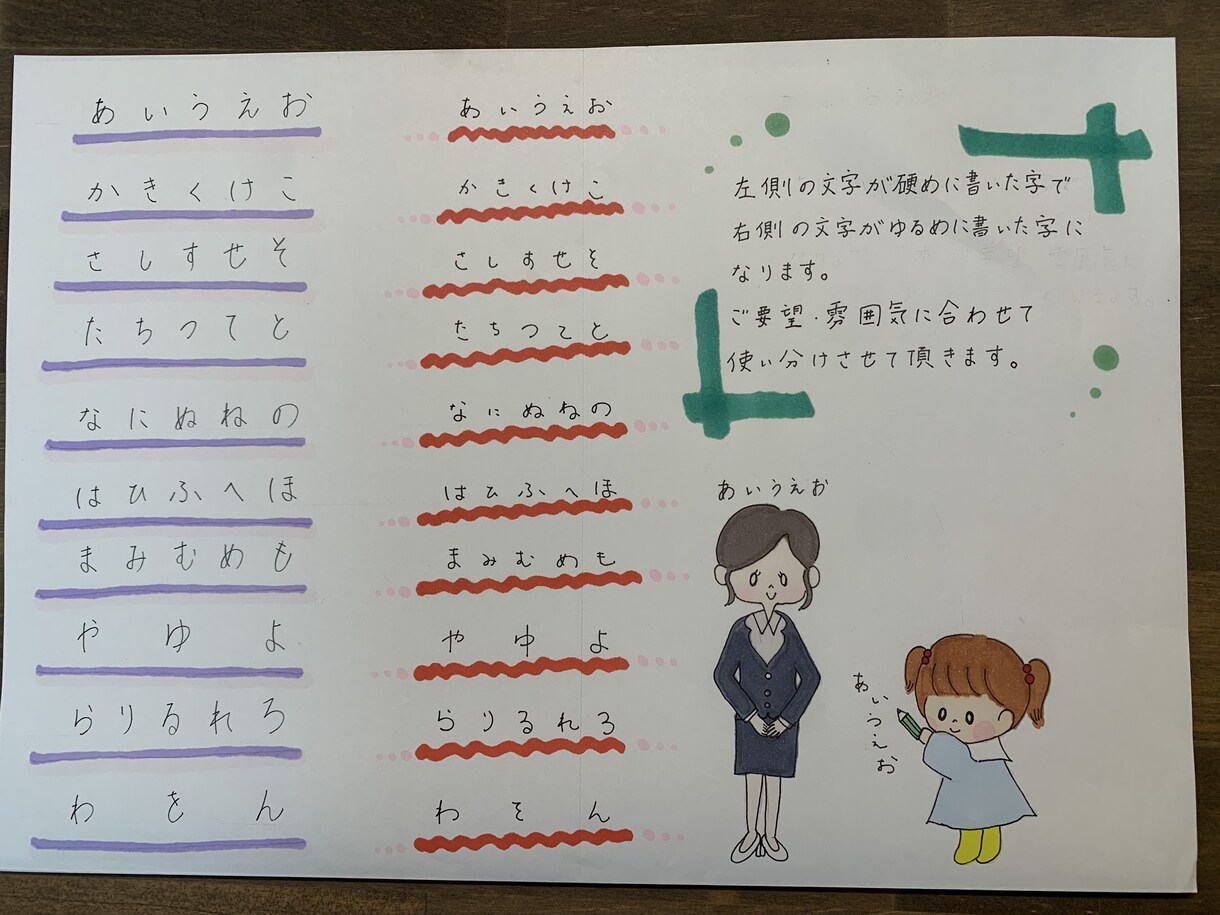 あいうえお
かきくけこ
さしすせそ
たちつてと
なにぬねの
はひふへほ
まみむめも
やゆよ
らりるれろ
わをん
あいうえお
かきくけこ
さしすせそ
たちつてと
なにぬねの
はひふへほ
まみむめも
やゆよ
らりるれろ
わをん
左側の文字が硬めに書いた字で
右側の文字がゆるめに書いた字に
なります。
ご要望・雰囲気に合わせて
使い分けさせて頂きます。
あいうえお
あいうえお